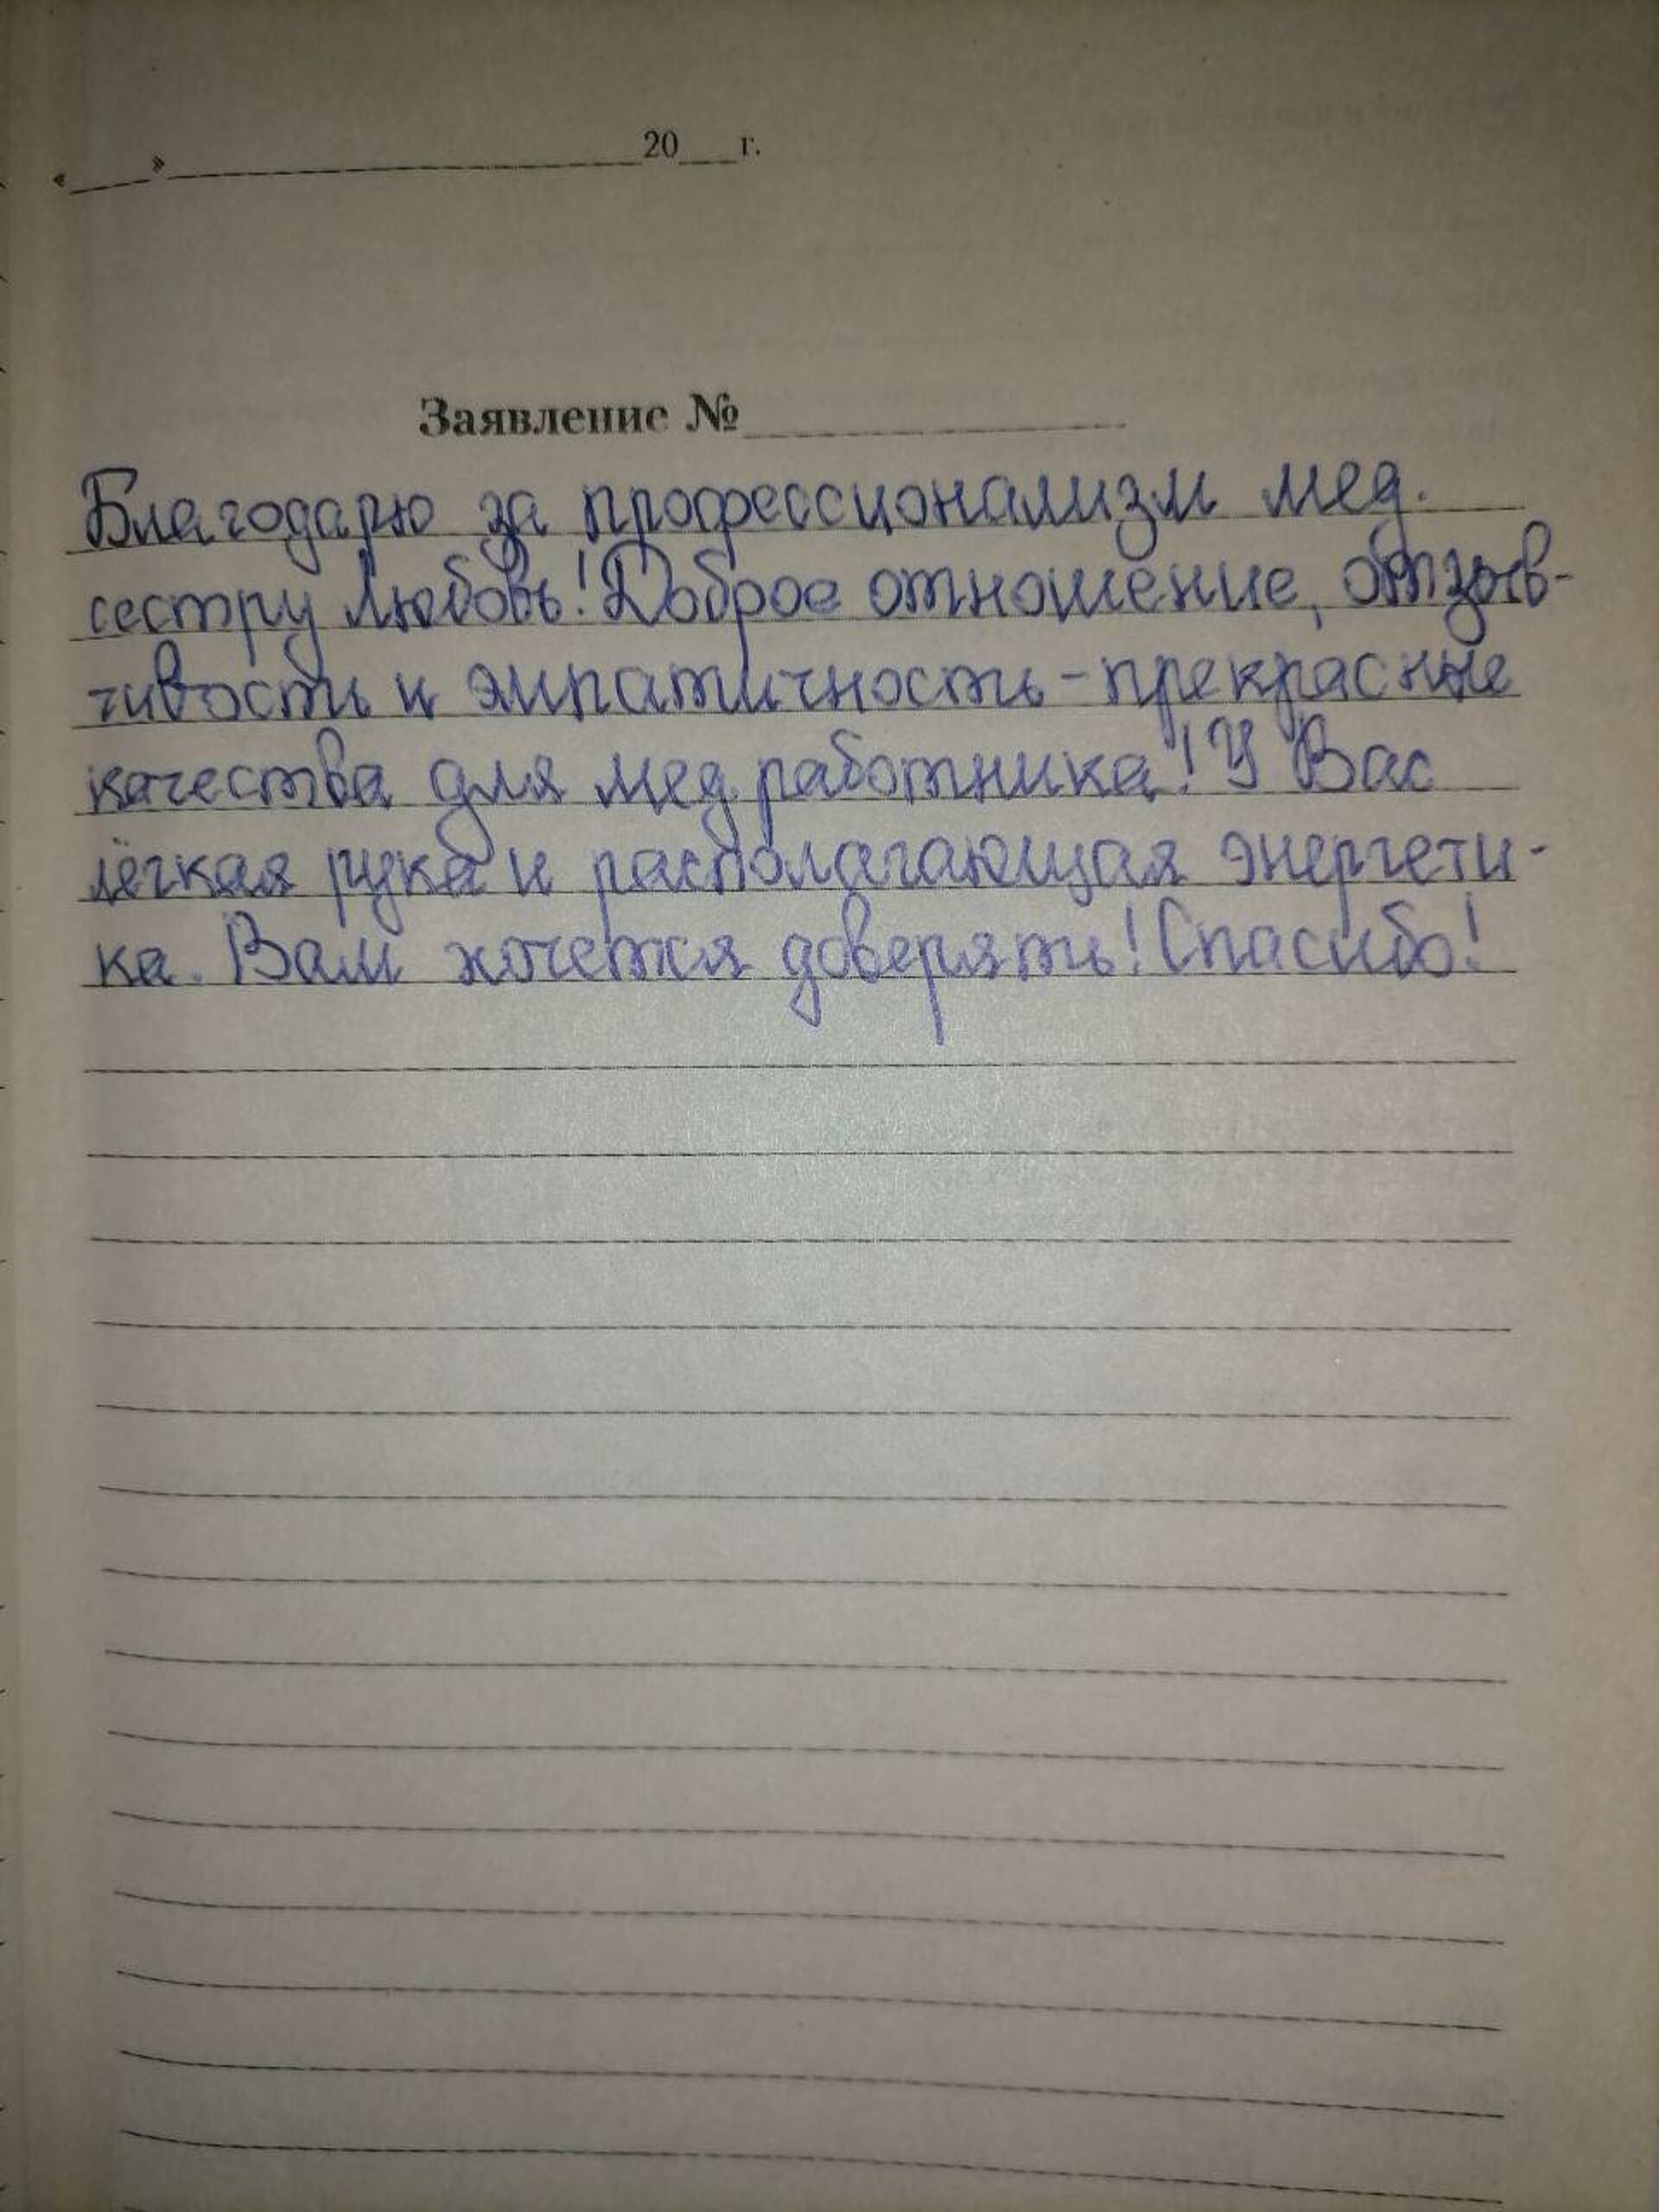 «____»____________________20___г.
Заявление №____________
Благодарю за профессионализм мед.
сестру Любовь! Доброе отношение, отзыв-
чивость и эмпатичность - прекрасные
качества для мед. работника! У Вас
лёгкая рука и располагающая энергети-
ка. Вам хочется доверять! Спасибо!